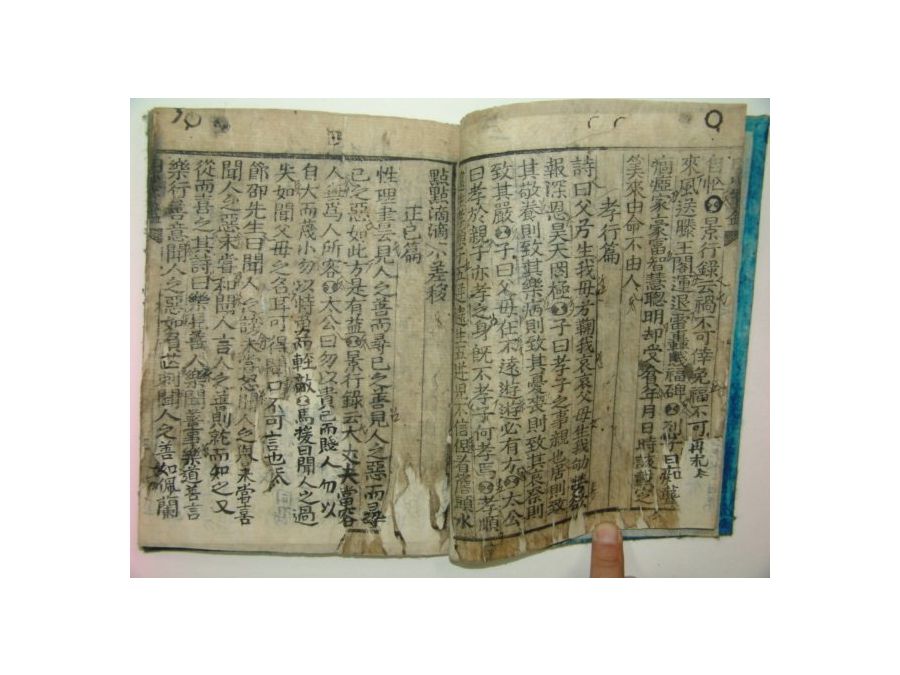 景行錄云禍不可倖免福不可再
來風送滕王閣運退雷轟薦福碑列子曰知聾
痼瘂家豪富智慧聰明却受貧年月日時該載定
筭來由命不由人
孝行篇
詩曰父兮生我母兮鞠我哀哀父母生我劬勞欲
報深恩昊天罔極子曰孝子之事親也居則致
其敬養則致其樂病則致其憂喪則致其哀祭則
致其嚴子曰父母在不遠遊遊必有方太公
曰孝於親子亦孝之身旣不孝子何孝焉孝順
點點滴滴不差移
正己篇
性理書云見人之善而尋己之善見人之惡而尋
己之惡如此方是有益景行錄云大丈夫當容
人無爲人所容太公曰勿以貴己而賤人勿以
自大而蔑小勿以恃勇而輕敵馬援曰聞人之過
失如聞父母之名耳可得聞口不可言也
節邵先生曰聞人之謗未嘗怒聞人之譽未嘗喜
聞人之惡未嘗和聞人言人之善則就而和之又
從而喜之其詩曰樂見善人樂聞善事樂道善言
樂行善意聞人之惡如負芒刺聞人之善如佩蘭